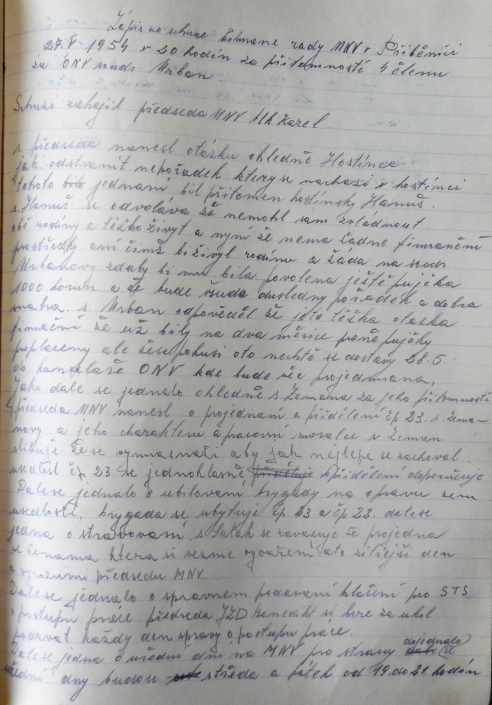 Zápis ze schuze rady MNV v Příběnici
27.V 1954 v 20 hodin za přítomnosti 4 členu
za ONV souds Urban
Schuzi zahajil předseda MNV Karel
s. předseda nanesl otásku ohledně Hostince
jak odstranit nepořádek ktery se nachazi v hostinci
tohoto bodu jednani bil přitomen hostinsky Hanuš.
s. Hanuš se odvoláva že nemohl sam zvládnout
obě rodiny a těžko živyl a nyni že nema žadne finančni
prostředky ani čimž bi živyl rodinu a žada na souds
Urbanovy zdaby bi mu bila povolena ještě pujčka
1000 korun a že bude všude dusledny pořadek a dobra
snaha s. Urban odpověděl že jeto těžka otaska
finančni že už bily na dva měsice pujčky
poplaceny ale že se pokusi oto nechtě se dostavy 28.5.
do kancelaře ONV kde bude věc projednana,
Jako dale se jednalo ohledně s Zemana za jeho přitomnosti
předseda MNV nanesl o projednani a přidělení čp 23 s. Zema-
novy a jeho charakteru a pracovni moralce s. Zeman
slibuje že se vynasnaži aby jak nejlepe se zachoval
usedlost čp. 23 se jednohlasně k přidělení doporučuje
Dalese jednalo o ubitovani brygady na opravu zem
usedlosti, brygada se ubytuje čp 23 a čp 28. dalese
jedna o stravovani, s. se zavazuje že projedna
se ženama ktera si vezme vyvařeni ato zitřejší den
a vyrozumi předsedu MNV.
Dalese jednalo o spravnem podavani hlašeni pro STS
o postupu prace předseda JZD Benedikt si bere za ukol
podavat každy den spravy o postupu prace.
dalese jedna o uředni dni na MNV pro strany dojednalo se
uředni dny budou středa a patek od 19 do 21. hodin